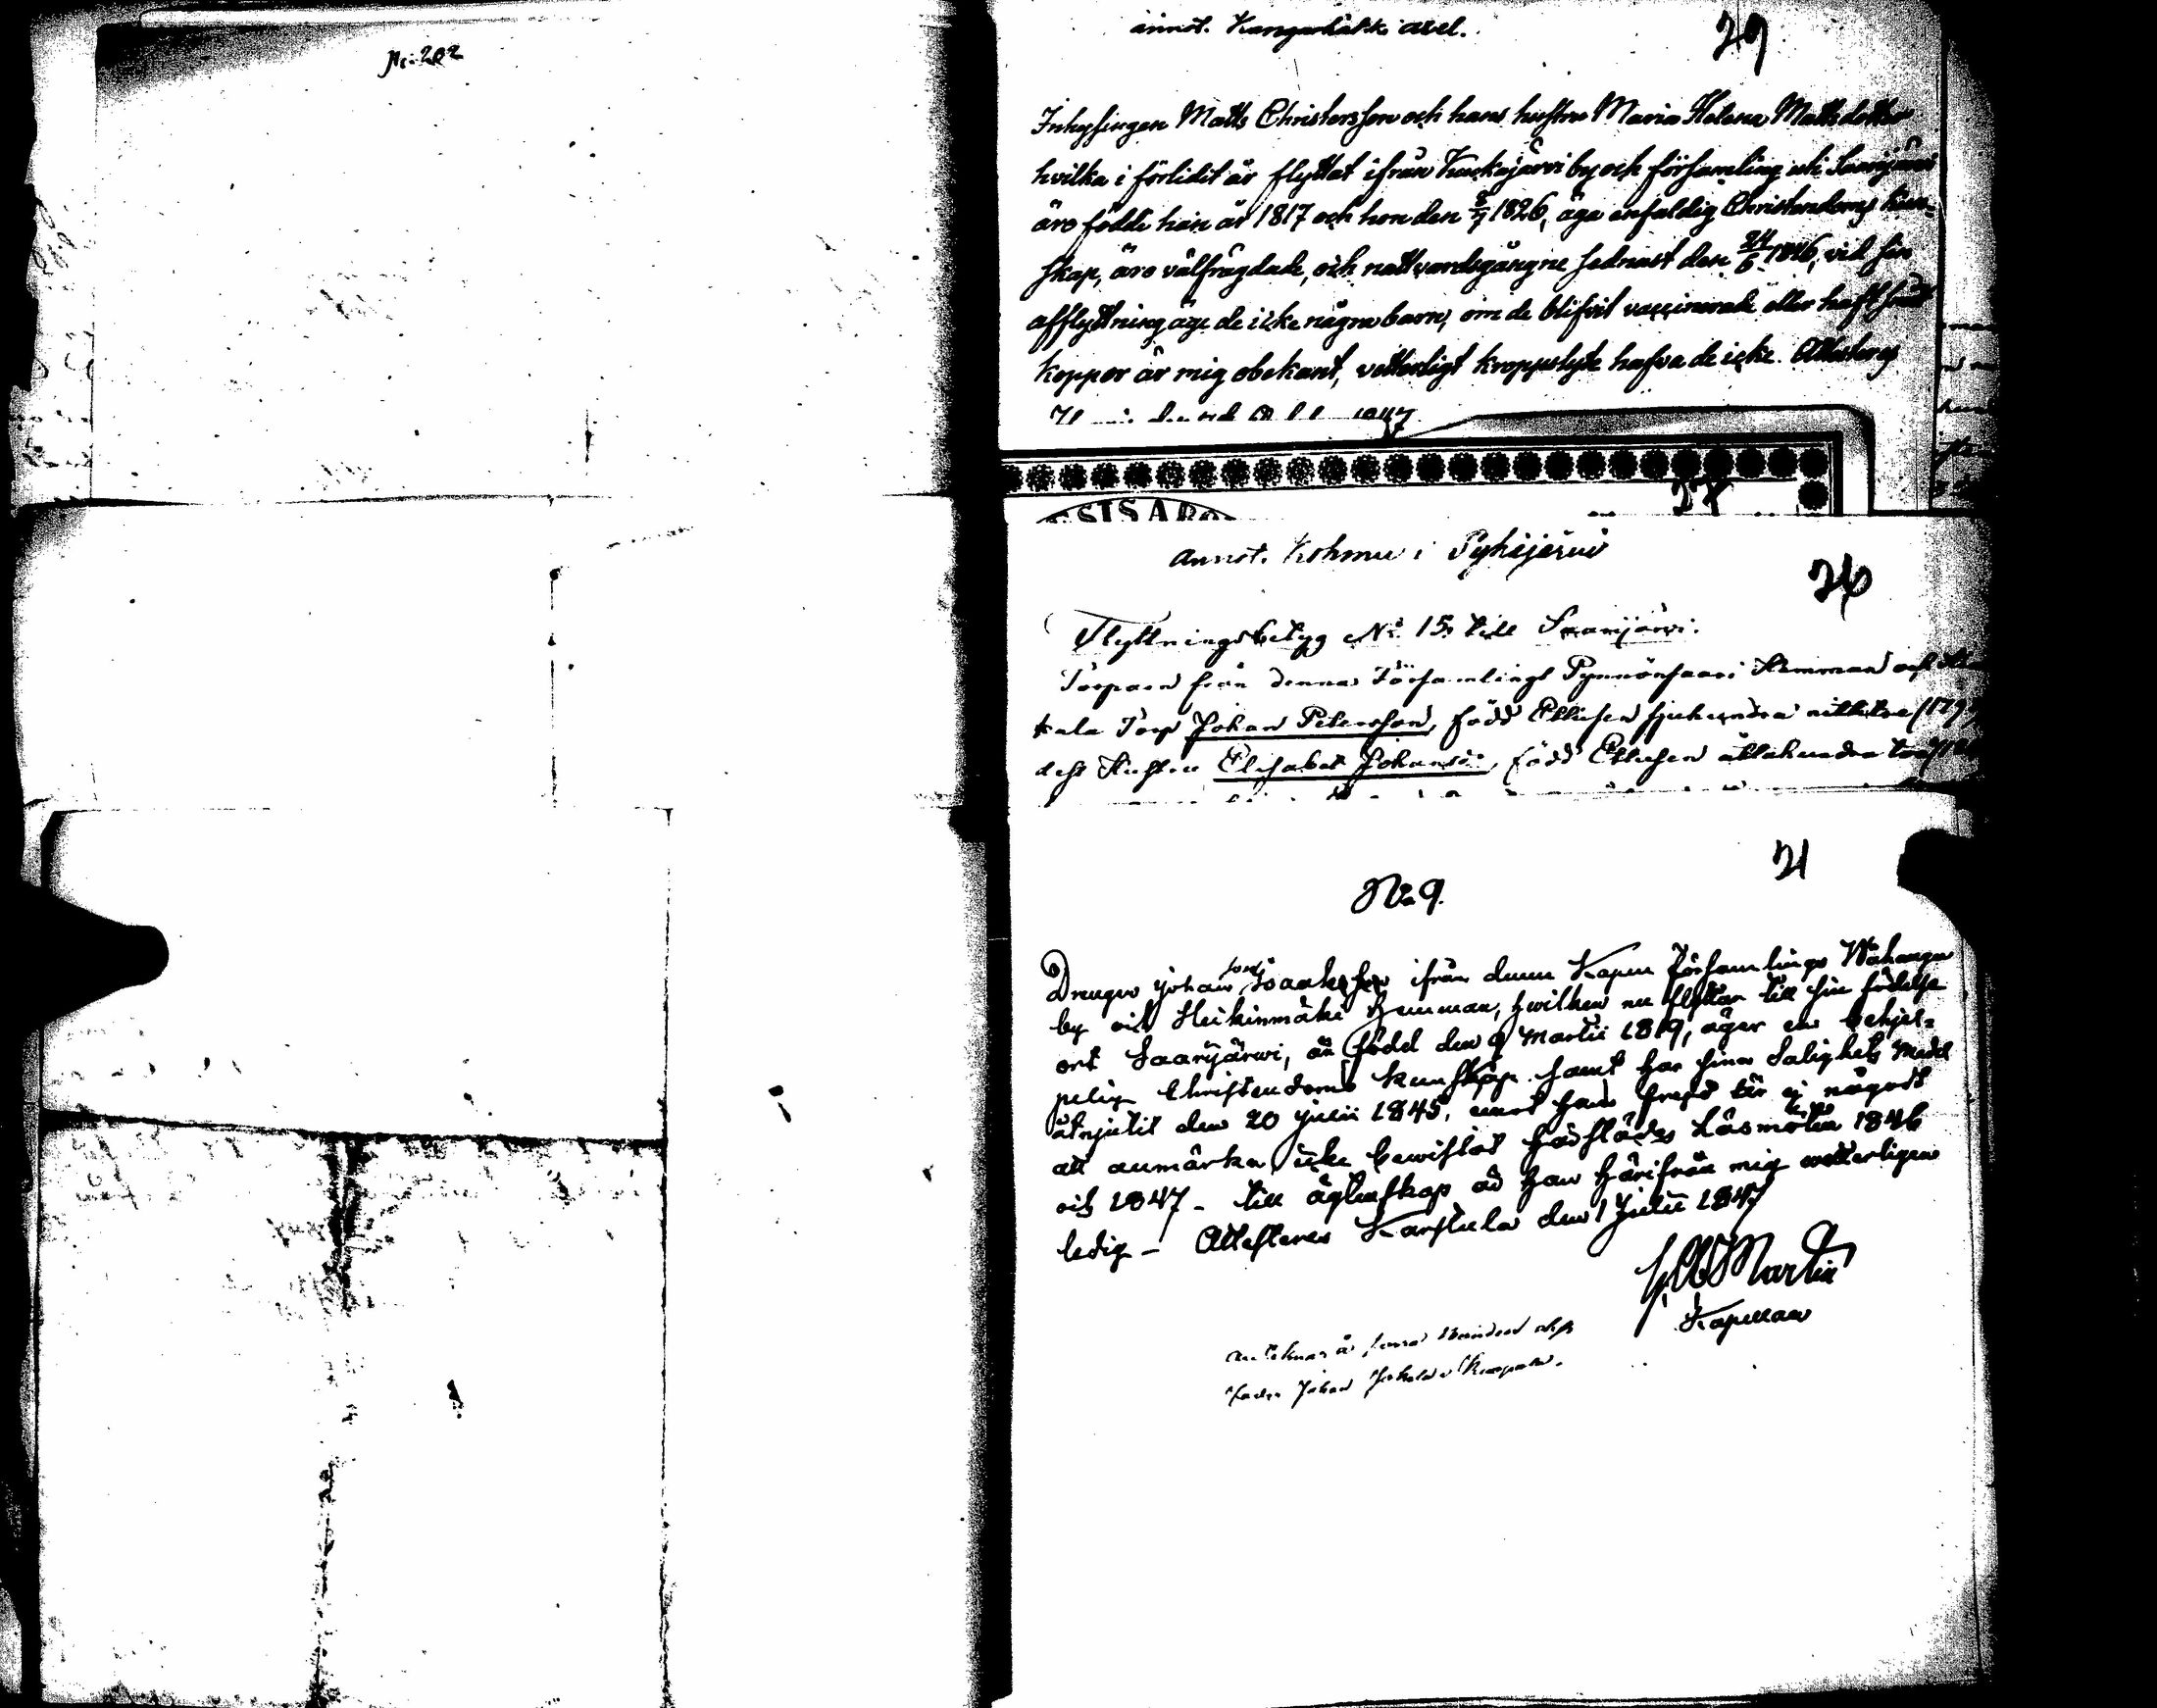 No 202
annot. Kangashäkki arel.
29
Inhysingen Matts Christersson och hans hustru Maria Helena Mattsdotter
hvilka i förlidit år flyttat ifrån Kuckajärvi by och församling uti Saarijärvi
äro födde han år 1817 och hon den 8/7 1826, äga enfaldig Christendoms kun-
skap, äro välfrägdade, och nattvardsgångne sednast den 24/6 1846, vid sin
afflyttning äga de icke några barn, om de blifvit vaccinerade eller haft
koppor är mig obekant, vetterligt kroppslyte hafva de icke. Attesteras
1847
27
annot. Kohmu i Pyhäjärvi
26
Flyttningsbetyg No 15. till Saarijärvi.
Torparn från denna Församlings Pynnönsaari Hemman och
tala Torp Johan Petersson, född Ettusen sjuhundra nittitre (179
dess Hustru Elisabet Johansd:r, född Ettusen åttahundra två (18
21
No 9.
Drengen Johan Isaaksson ifrån denna Kapell Församlings Wahanga
by och Heikinmäki Hemman, hvilken nu flyttar till sin födelse
ort Saarijärvi, är född den 9 Martii 1819, äger en behjel-
pelig Christendoms kunskap samt har sina Salighets medel
åtnjutit den 20 Julii 1845, emot hans frejd bär ej något
att anmärka, icke bewistat Läsmöten 1846
och 1847 - till ägtenskap är han härifrån mig wetterligen
ledig - Attesteras Karstula den 1 Julii 1847
Martin
Kapellan
Johan